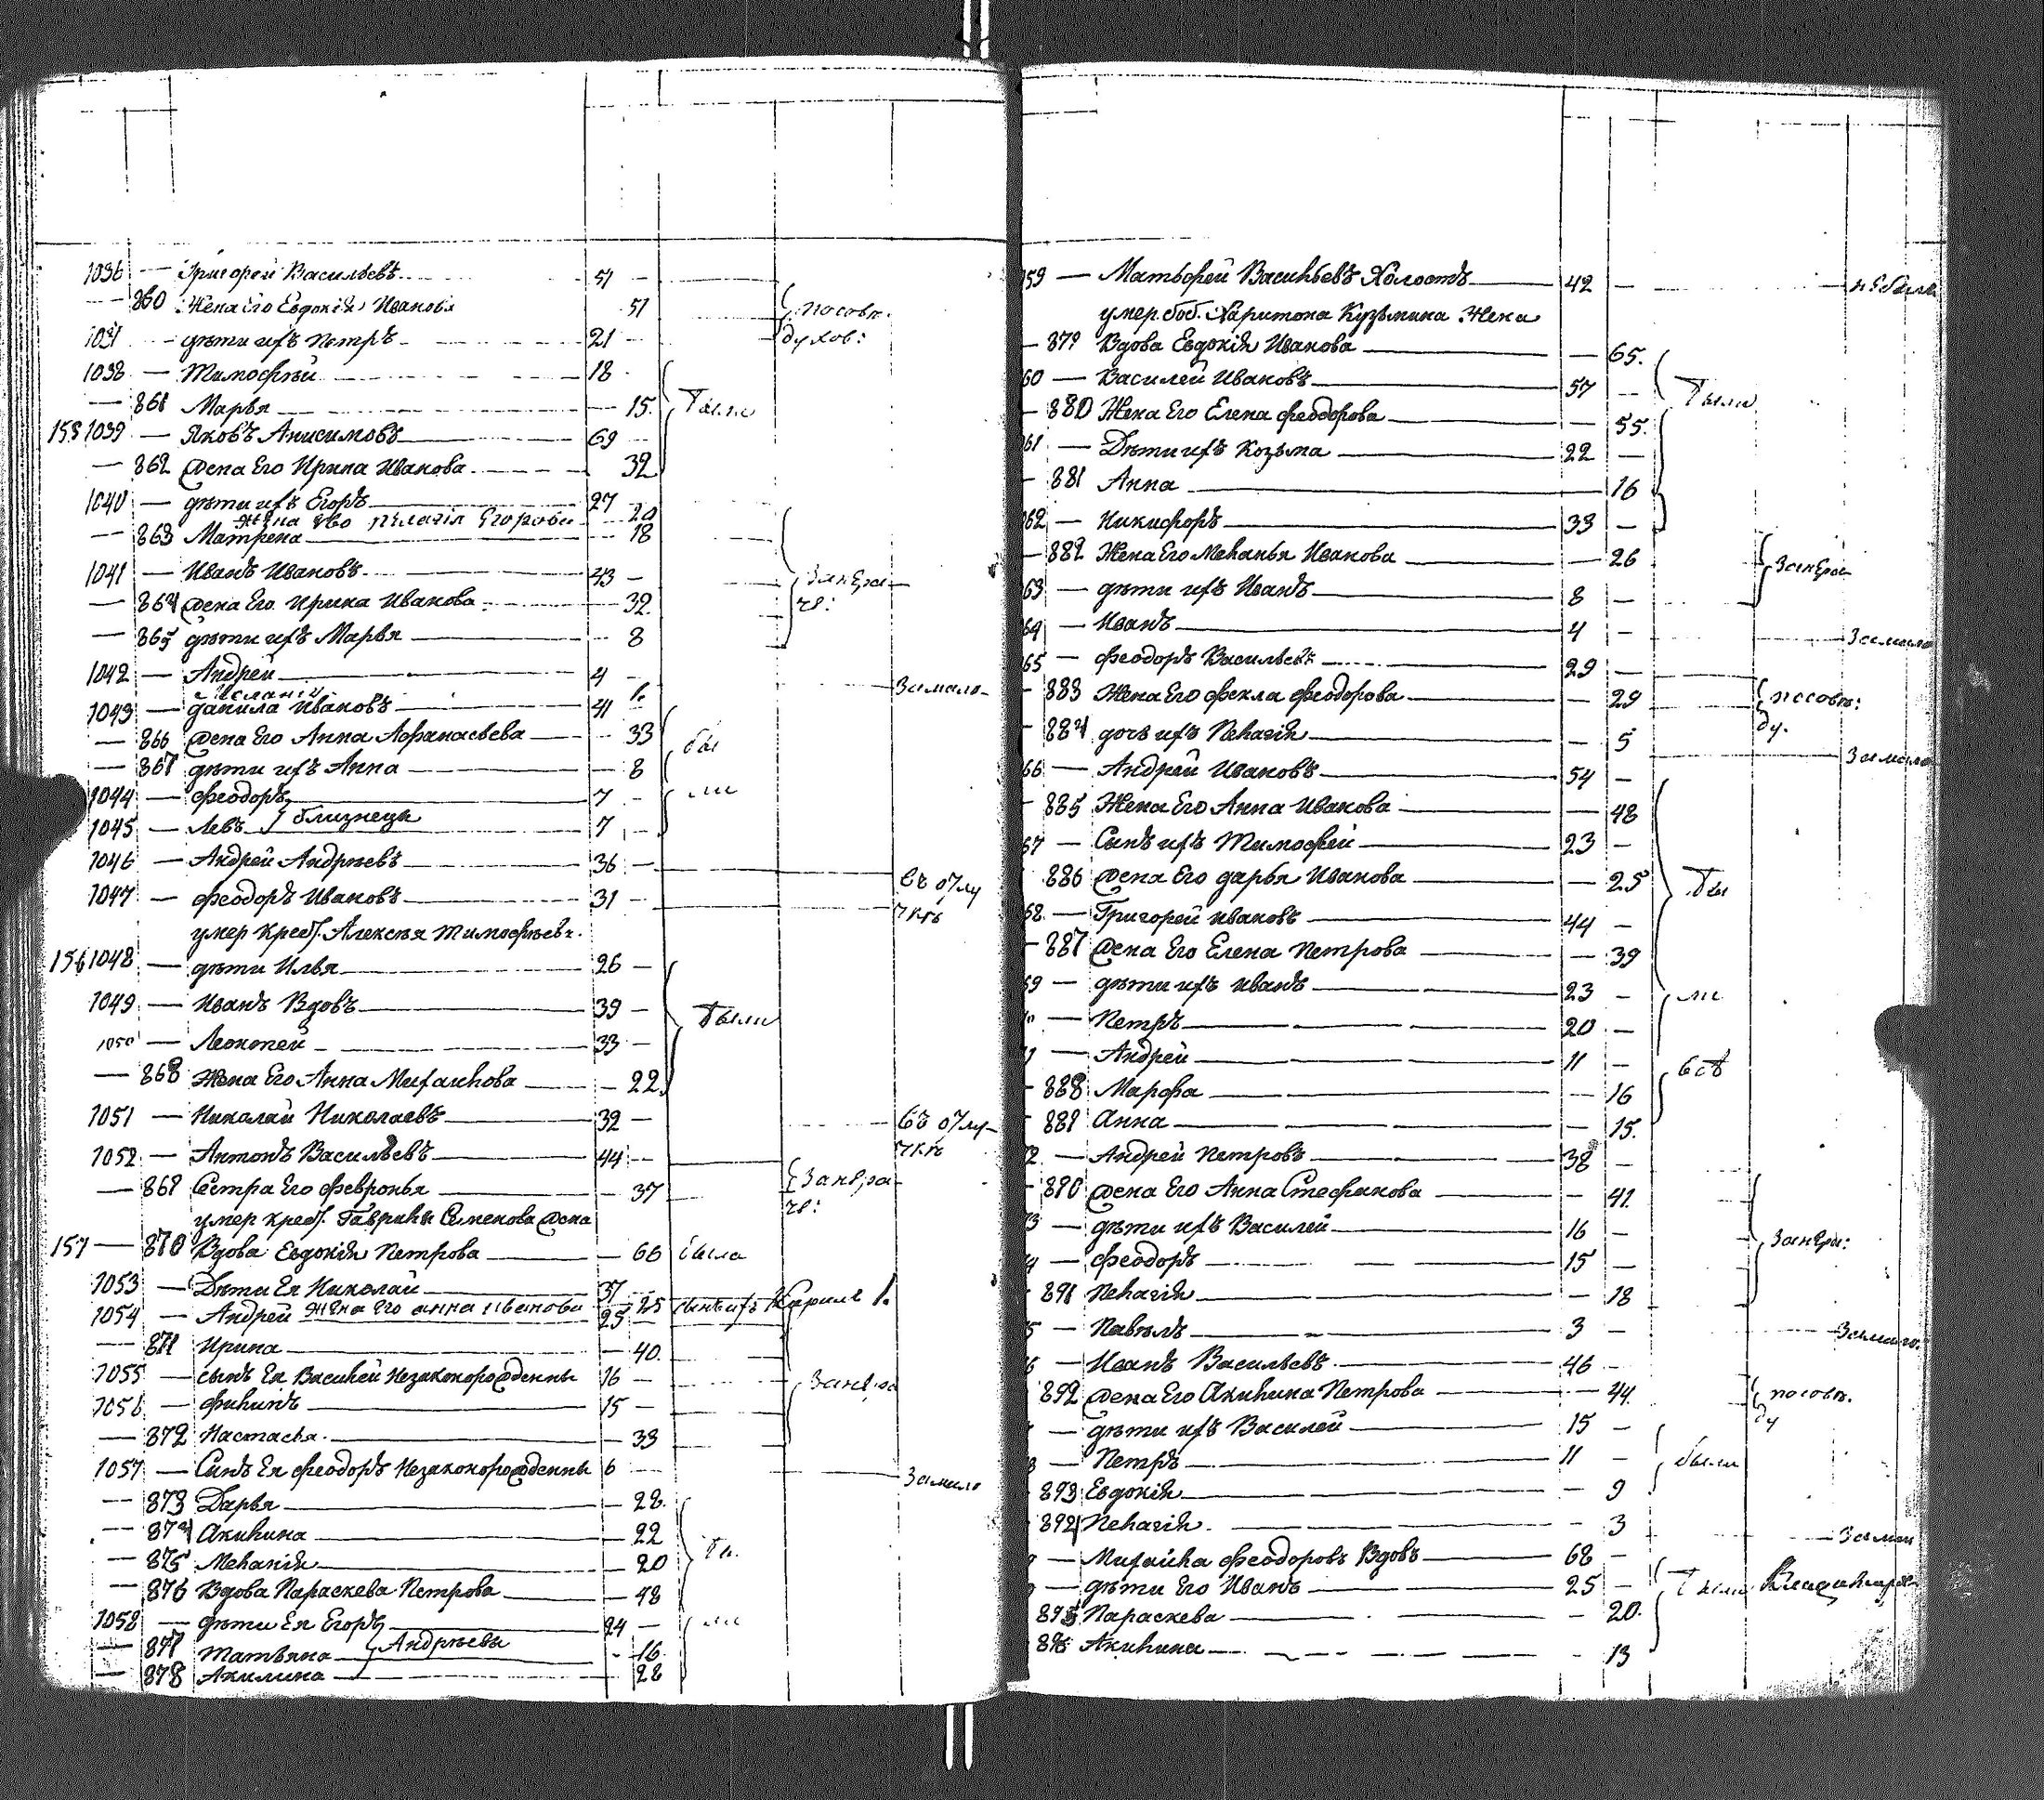 1036 — Григорей Васильевъ 51 —
— 860 Жена Его Евдокія Иванова 51 посовѣ.
1037 — дѣти ихъ Петръ 21 — духов:
1038 — Тимофѣй 18
— 861 Марья — 15. были
155 1039 — Яковъ Анисимовъ 69
— 862 жена Его Ирина Иванова 32
1040 — дѣти ихъ Егоръ 27
жена его пелагія Егорова 20
— 863 Матрена 18
1041 — Иванъ Ивановъ 43 — Занера-
— 864 жена Его Ирина Иванова — 32. че:
— 865 дѣти ихъ Марья 8
1042 — Андрей 4 — Замало-
1.
1043 — данила Ивановъ 41
— 866 жена Его Анна Афанасьева — 33 бы
— 867 дѣти ихъ Анна — 8
1044 — Феодоръ 7 — ли
1045 — Левъ близнецы 7 —
1046 — Андрей Андрѣевъ 36 —
1047 — Феодоръ Ивановъ 31 — въ отлучкѣ
умер крест. Алексѣя Тимофѣева.
156 1048 — дѣти Илья 26 —
1049 — Иванъ Вдовъ 39 — были
1050 — Леонтей 33 —
— 868 Жена Его Анна Михайлова — 22.
1051 — Николай Николаевъ 32 — въ отлу-
чкѣ
1052 — Антонъ Васильевъ 44 — Занера-
— 869 Сестра Его Февронья — 37 че:
умер крест. Гаврилы Семенова жена
157 — 870 Вдова Евдокія Петрова — 66 была
1053 — Дѣти Ея Николай 37 —
жена его анна иванова 25 сынъ ихъ Кариле 1.
1054 — Андрей 25 —
— 871 Ирина — 40.
1055 — сынъ Ея Василей Незаконорожденны 16 — Занера
1056 — Филипъ 15 —
— 872 Настасья — 33
1057 — Сынъ Ея Феодоръ Незаконорожденны 6 — Замало
— 873 Дарья — 28.
— 874 Акилина — 22 бы
— 875 Меланія — 20
— 876 Вдова Параскева Петрова — 48
1058 — дѣти Ея Егоръ 24 — ли
— 877 Татьяна Андрѣевы — 16
— 878 Акилина — 28
059 — Матфей Васильевъ Холостъ 42 — небыль
умер. боб. Харитона Кузьмина Жена
— 879 Вдова Евдокія Иванова — 65.
60 — Василей Ивановъ 57 — были
— 880 Жена Его Елена Феодорова — 55.
061 — Дѣти ихъ Козьма 22 —
— 881 Анна — 16
062 — Никифоръ 33 —
— 882 Жена Его Меланья Иванова — 26 Занера
63 — дѣти ихъ Иванъ 8 —
64 — Иванъ 4 — Замало
65 — Феодоръ Васильевъ 29 —
— 883 Жена Его Фекла Феодорова — 29 посовѣ:
— 884 дочь ихъ Пелагія — 5 ду. Замало
66 — Андрей Ивановъ 54 —
— 885 Жена Его Анна Иванова — 48
67 — Сынъ ихъ Тимофей 23 —
886 жена Его дарья Иванова — 25 бы
68 — Григорей Ивановъ 44 —
— 887 жена Его Елена Петрова — 39
69 — дѣти ихъ Иванъ 23 — ли
— Петръ 20 —
71 — Андрей 11 — всѣ
— 888 Марфа — 16
— 889 Анна — 15.
72 — Андрей Петровъ 38 —
— 890 жена Его Анна Стефанова — 41.
73 — дѣти ихъ Василей 16 — Занера:
4 — Феодоръ 15 —
891 Пелагія — 18
5 — Павелъ 3 — Замало.
6 — Иванъ Васильевъ 46 —
892 жена Его Акилина Петрова — 44. посовѣ.
— дѣти ихъ Василей 15 — ду
8 — Петръ 11 — были
893 Евдокія — 9
894 Пелагія — 3 Замал
— Михайла Феодоровъ Вдовъ 68 —
— дѣти Его Иванъ 25 — были
895 Параскева — 20.
896 Акилина — 13